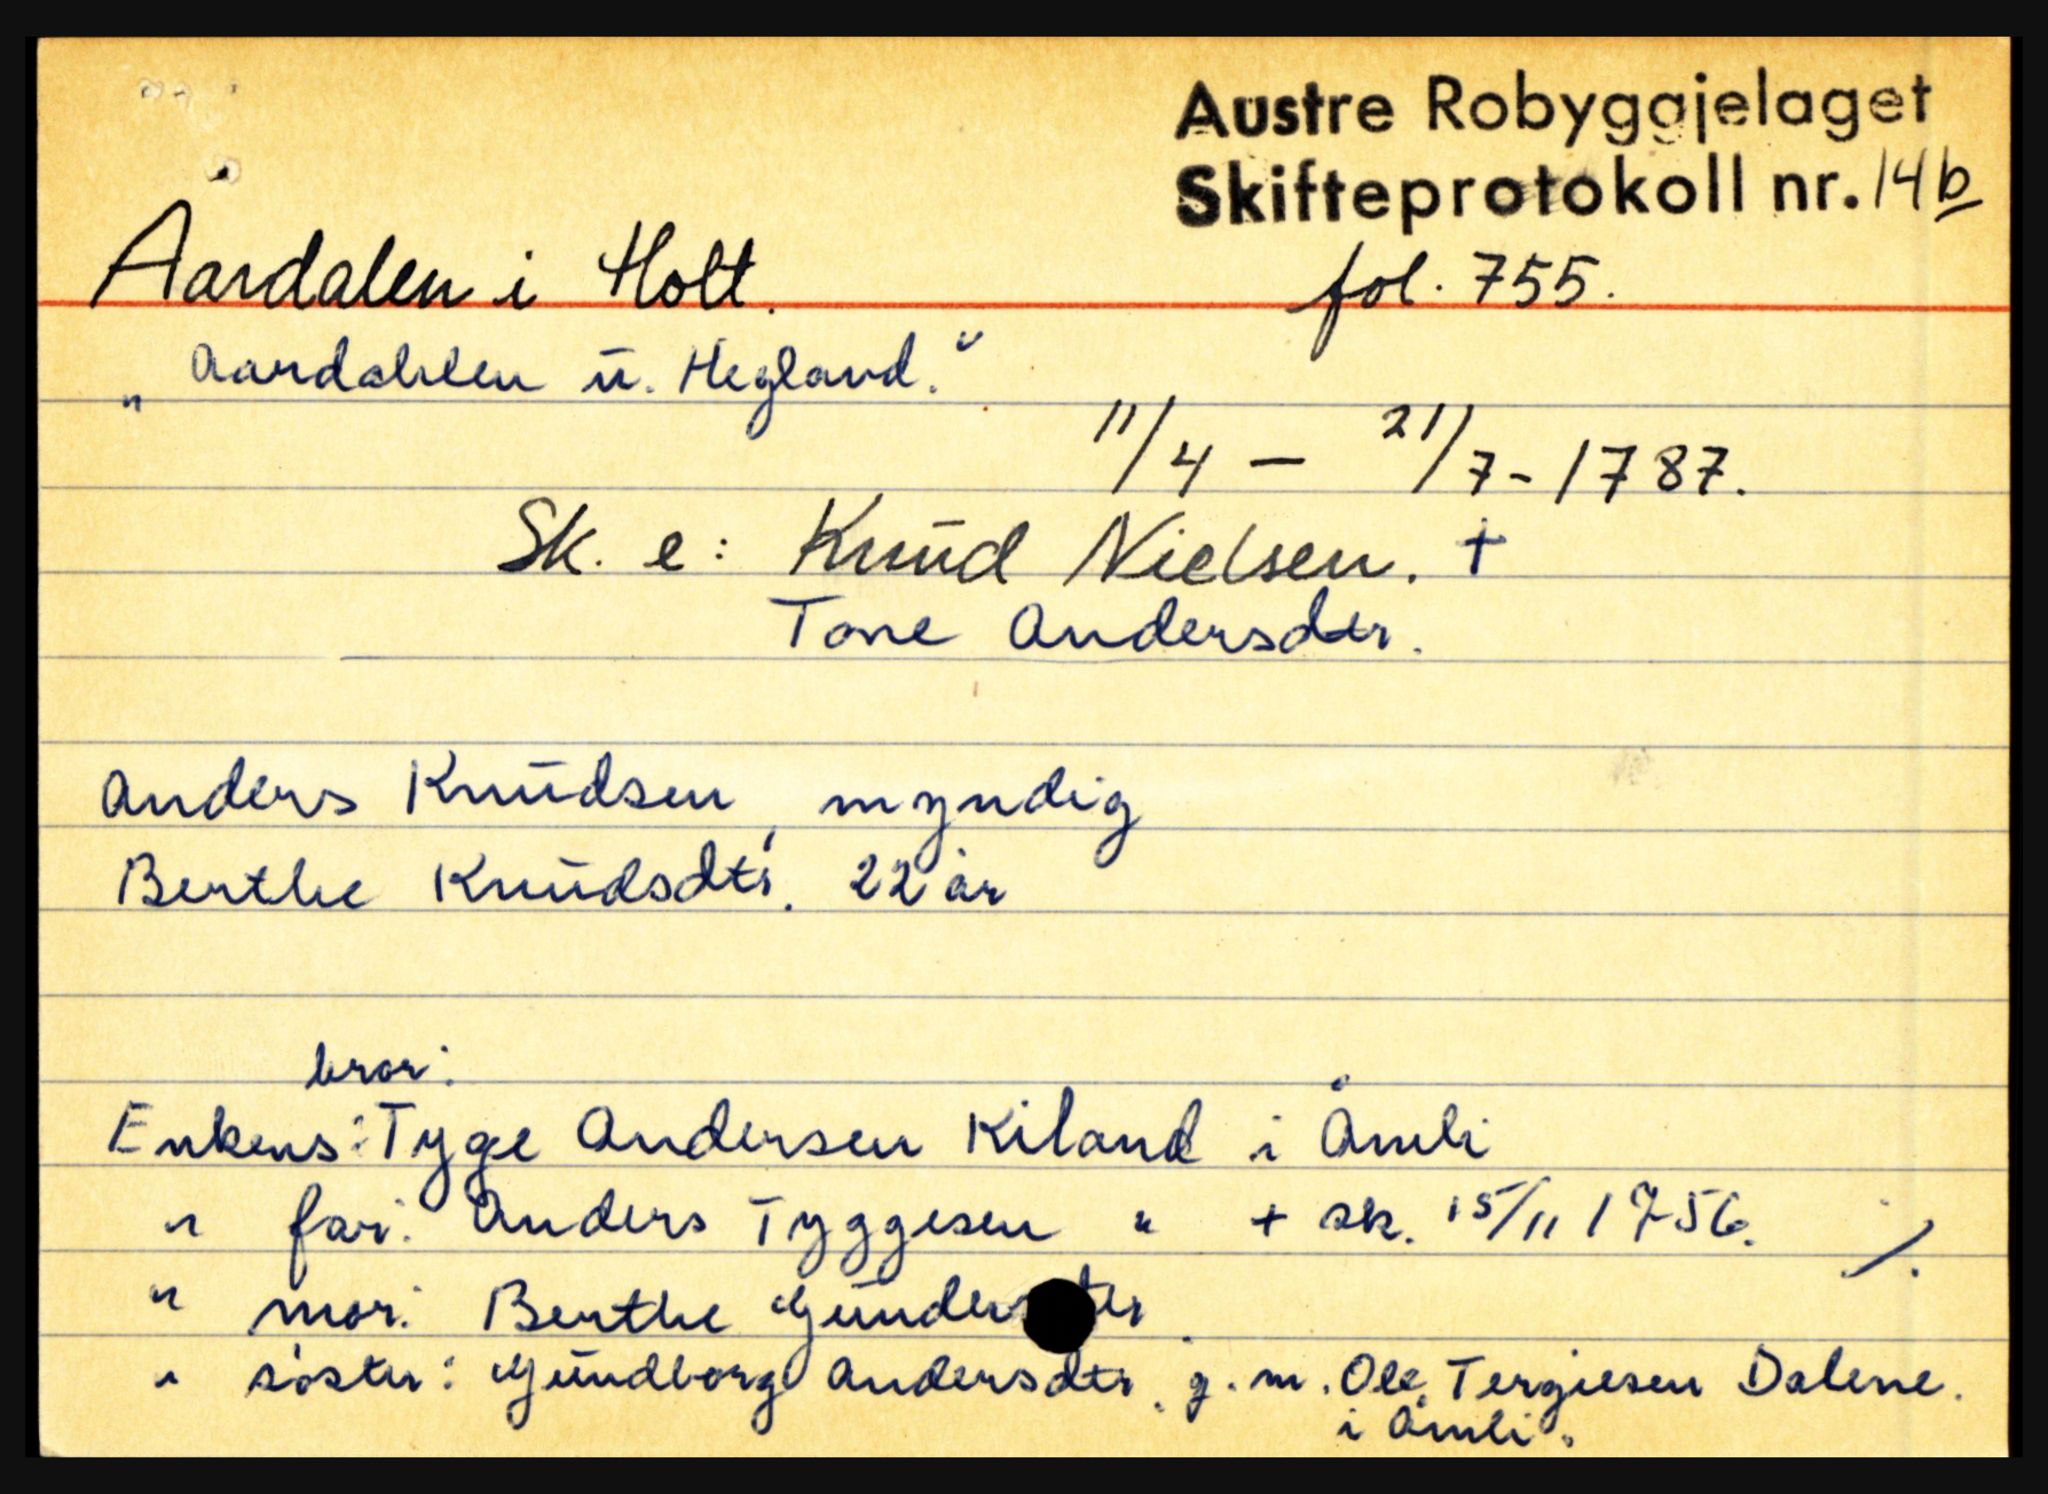 Austre Robyggjelaget
Skifteprotokoll nr. 14b
Åardalen i Holt. fol. 755.
„Aardahlen u. Hegland."
11/4 – 21/7 - 1787.
Sk. e: Knud Nielsen. +
Tone Andersdtr.
Anders Knudsen, myndig
Berthe Knudsdtr. 22 år
bror:
Enkens: Tyge Andersen Kiland i Åmli
" far: Anders Tyggesen " + sk. 15/11 1756. ./.
" mor: Berthe
" søster: Gundborg Andersdtr. g. m. Ole Tergiesen Dalene.
i Åmli.